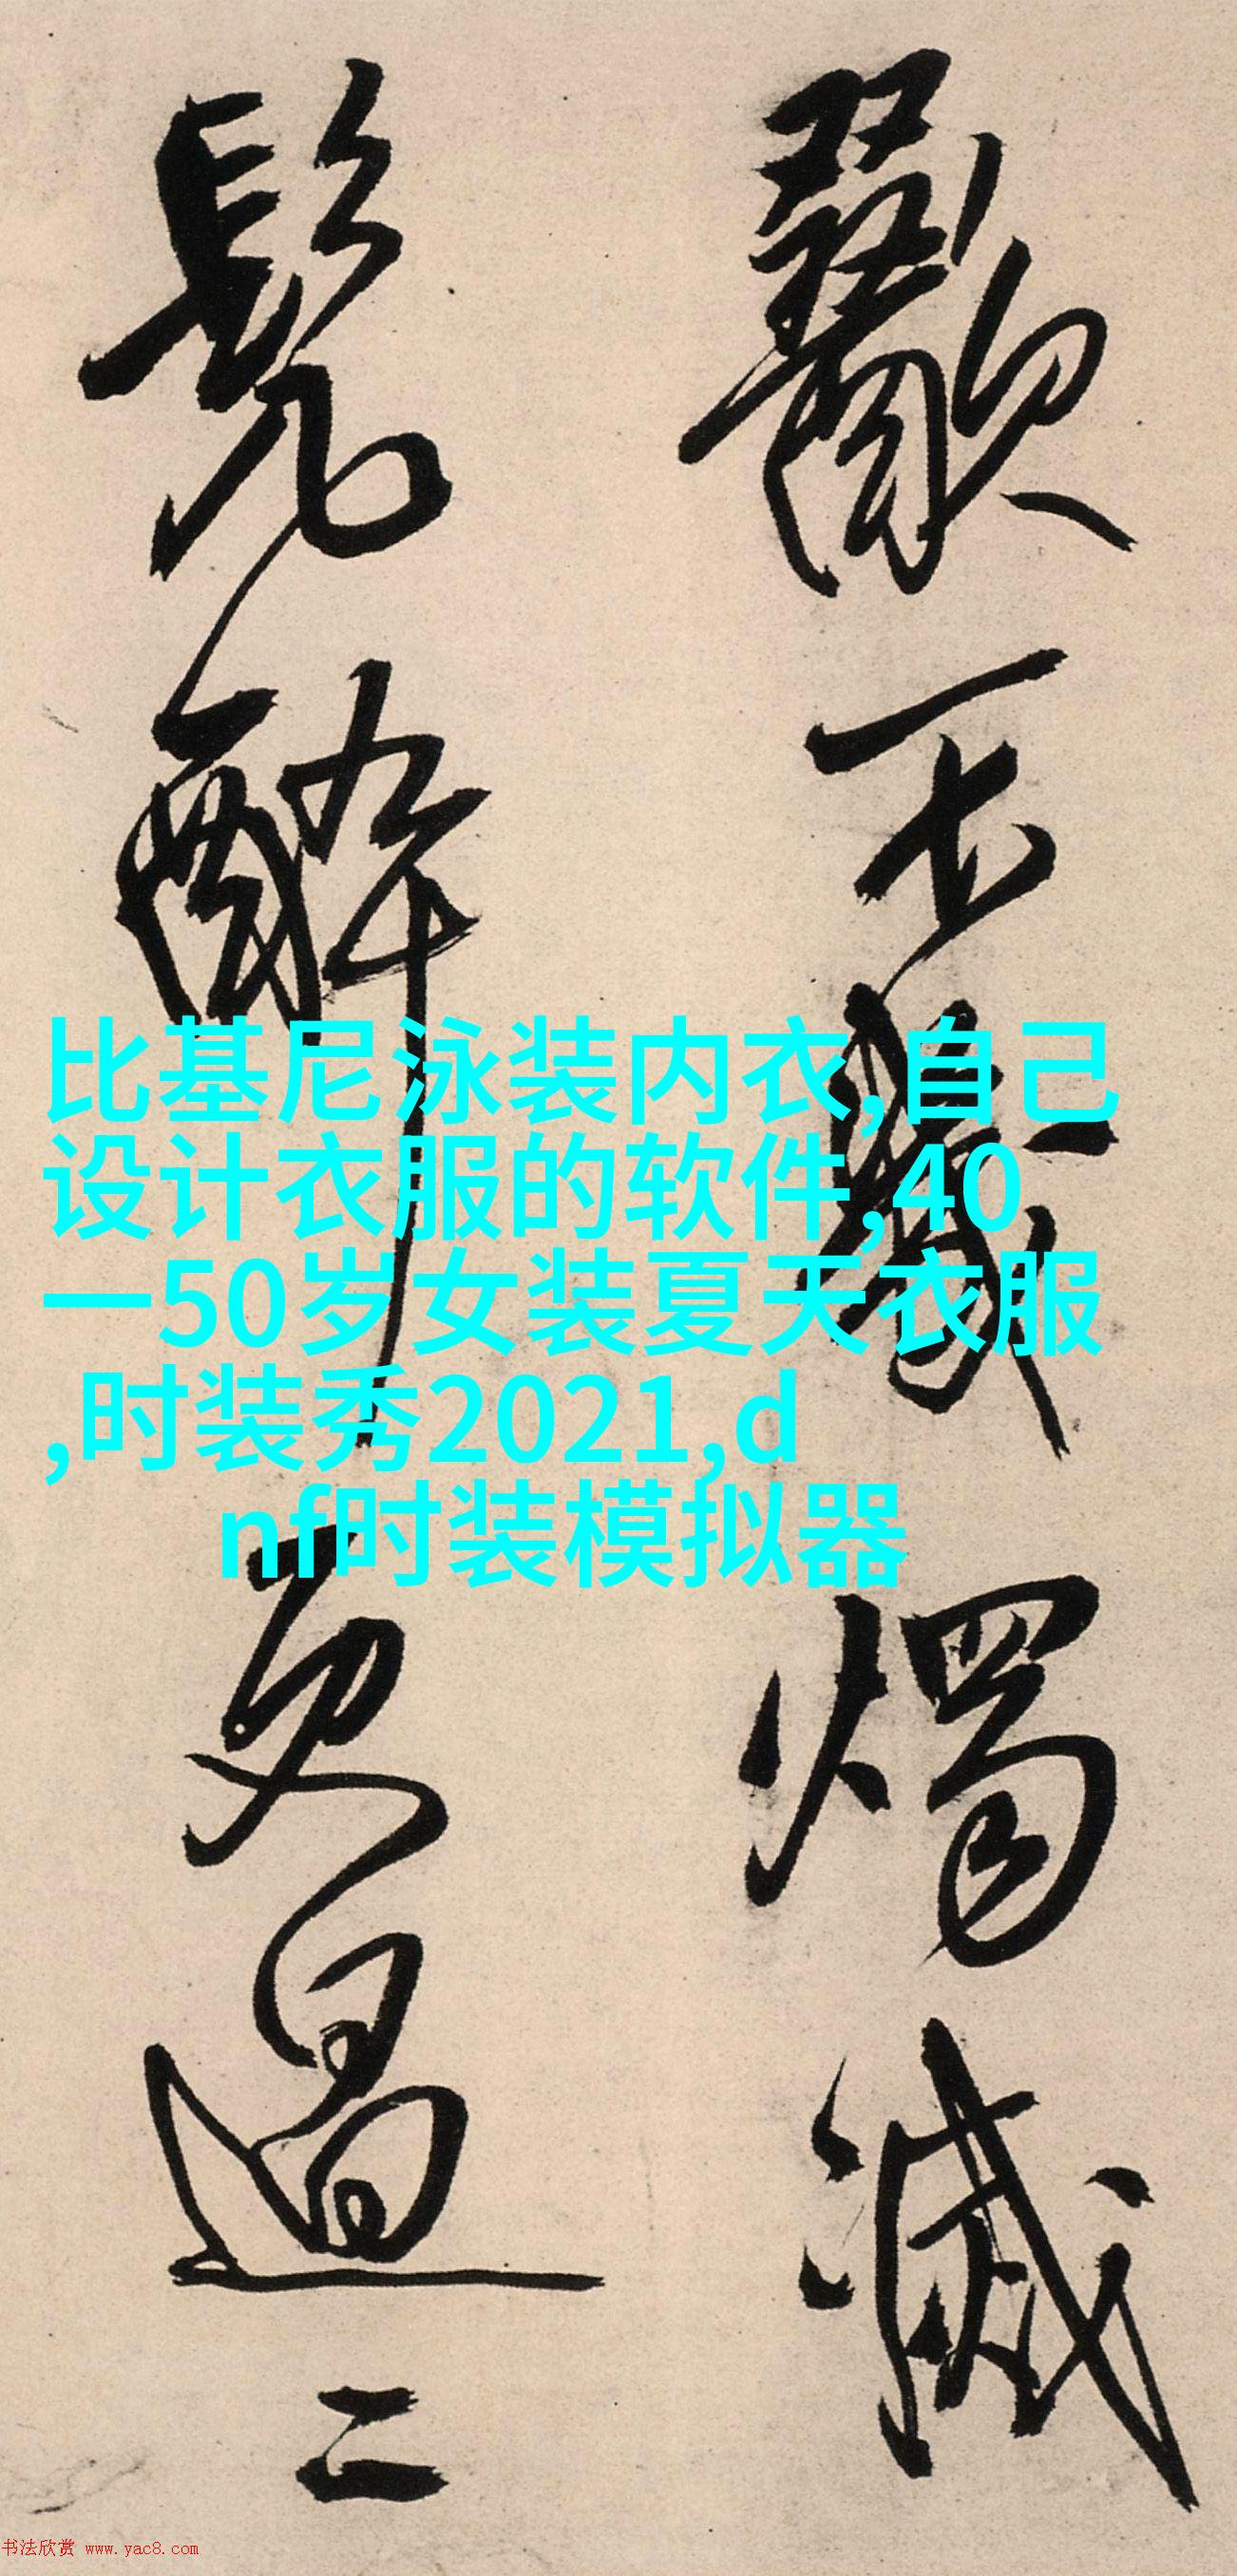 燭滅
髡醉
更過二
比基尼泳装内衣,自己
设计衣服的软件,40
一50岁女装夏天衣服
,时装秀2021,d
nf时装模拟器
书法欣赏 www.yac8.com